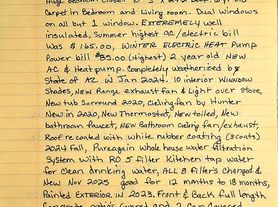 Carpet in Bedroom and Living room. Dual windows
on all but 1 window. EXTREMELY well
insulated, Summer highest ac/electric bill
Was $165.00, WINTER ELECTRIC HEAT Pump
Power bill $85.00 (Highest) 2 year old New
AC & Heat pump. Completely weatherized by
State of AZ in Jan 2024. 10 interior Window
Shades, New Range exhaust fan & Light over stove,
New tub Surround 2020, Ceiling fan by Hunter
New in 2020, New Thermostat, New toilet, New
bathroom faucet, New Bathroom Ceiling fan/exhaust,
Roof recoated with white rubber coating (3 coats)
2024 Fall, Pureagain Whole house water filtration
System with RO 5 filter Kitchen tap water
for clean drinking water, ALL 8 filters Changed &
New Nov 2025 good for 12 months to 18 months,
Painted EXTERIOR in 2023, Front & Back full length